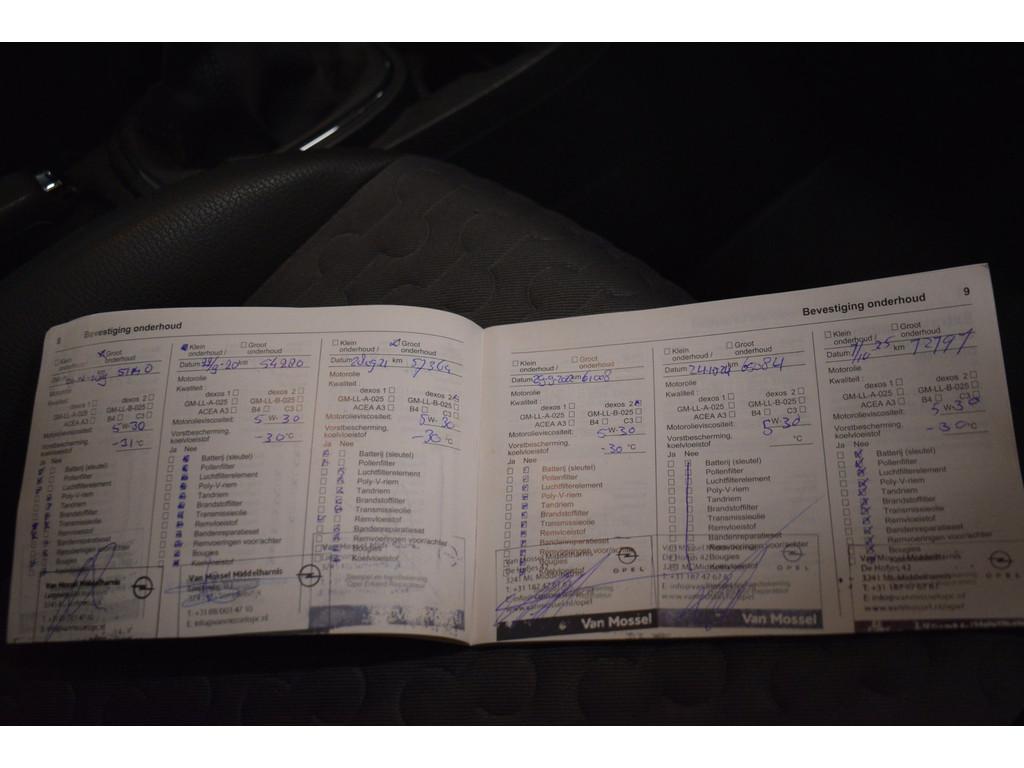 8 Bevestiging onderhoud
Klein onderhoud / Groot onderhoud
Datum km
Motorolie
Kwaliteit :
dexos 1 dexos 2
GM-LL-A-025 GM-LL-B-025
ACEA A3 B4 C3
Motorolieviscositeit:
5 W-30
Vorstbescherming, koelvloeistof
-31 °C
Ja Nee
Batterij (sleutel)
Pollenfilter
Luchtfilterelement
Poly-V-riem
Tandriem
Brandstoffilter
Transmissieolie
Remvloeistof
Bandenreparatieset
Remvoeringen voor/achter
Bougies
Van Mossel Middelharnis
Klein onderhoud / Groot onderhoud
Datum km 54220
Motorolie
Kwaliteit :
dexos 1 dexos 2
GM-LL-A-025 GM-LL-B-025
ACEA A3 B4 C3
Motorolieviscositeit:
5 W-30
Vorstbescherming, koelvloeistof
-30 °C
Ja Nee
Batterij (sleutel)
Pollenfilter
Luchtfilterelement
Poly-V-riem
Tandriem
Brandstoffilter
Transmissieolie
Remvloeistof
Bandenreparatieset
Remvoeringen voor/achter
Bougies
Koelvloeistof
Van Mossel Middelharnis
Klein onderhoud / Groot onderhoud
Datum km
Motorolie
Kwaliteit :
dexos 1 dexos 2
GM-LL-A-025 GM-LL-B-025
ACEA A3 B4 C3
Motorolieviscositeit:
5 W-30
Vorstbescherming, koelvloeistof
-30 °C
Ja Nee
Batterij (sleutel)
Pollenfilter
Luchtfilterelement
Poly-V-riem
Tandriem
Brandstoffilter
Transmissieolie
Remvloeistof
Bandenreparatieset
Remvoeringen voor/achter
Bougies
Koelvloeistof
Bevestiging onderhoud 9
Klein onderhoud / Groot onderhoud
Datum km 61008
Motorolie
Kwaliteit :
dexos 1 dexos 2
GM-LL-A-025 GM-LL-B-025
ACEA A3 B4 C3
Motorolieviscositeit:
5 W-30
Vorstbescherming, koelvloeistof
-30 °C
Ja Nee
Batterij (sleutel)
Pollenfilter
Luchtfilterelement
Poly-V-riem
Tandriem
Brandstoffilter
Transmissieolie
Remvloeistof
Bandenreparatieset
Remvoeringen voor/achter
Bougies
OPEL
Van Mossel
Klein onderhoud / Groot onderhoud
Datum km 65084
Motorolie
Kwaliteit :
dexos 1 dexos 2
GM-LL-A-025 GM-LL-B-025
ACEA A3 B4 C3
Motorolieviscositeit:
5 W-30
Vorstbescherming, koelvloeistof
°C
Ja Nee
Batterij (sleutel)
Pollenfilter
Luchtfilterelement
Poly-V-riem
Tandriem
Brandstoffilter
Transmissieolie
Remvloeistof
Bandenreparatieset
Remvoeringen voor/achter
Bougies
Koelvloeistof
OPEL
Van Mossel
Klein onderhoud / Groot onderhoud
Datum km 72797
Motorolie
Kwaliteit :
dexos 1 dexos 2
GM-LL-A-025 GM-LL-B-025
ACEA A3 B4 C3
Motorolieviscositeit:
5 W-30
Vorstbescherming, koelvloeistof
-30 °C
Ja Nee
Batterij (sleutel)
Pollenfilter
Luchtfilterelement
Poly-V-riem
Tandriem
Brandstoffilter
Transmissieolie
Remvloeistof
Bandenreparatieset
Remvoeringen voor/achter
De Hofjes 42
OPEL